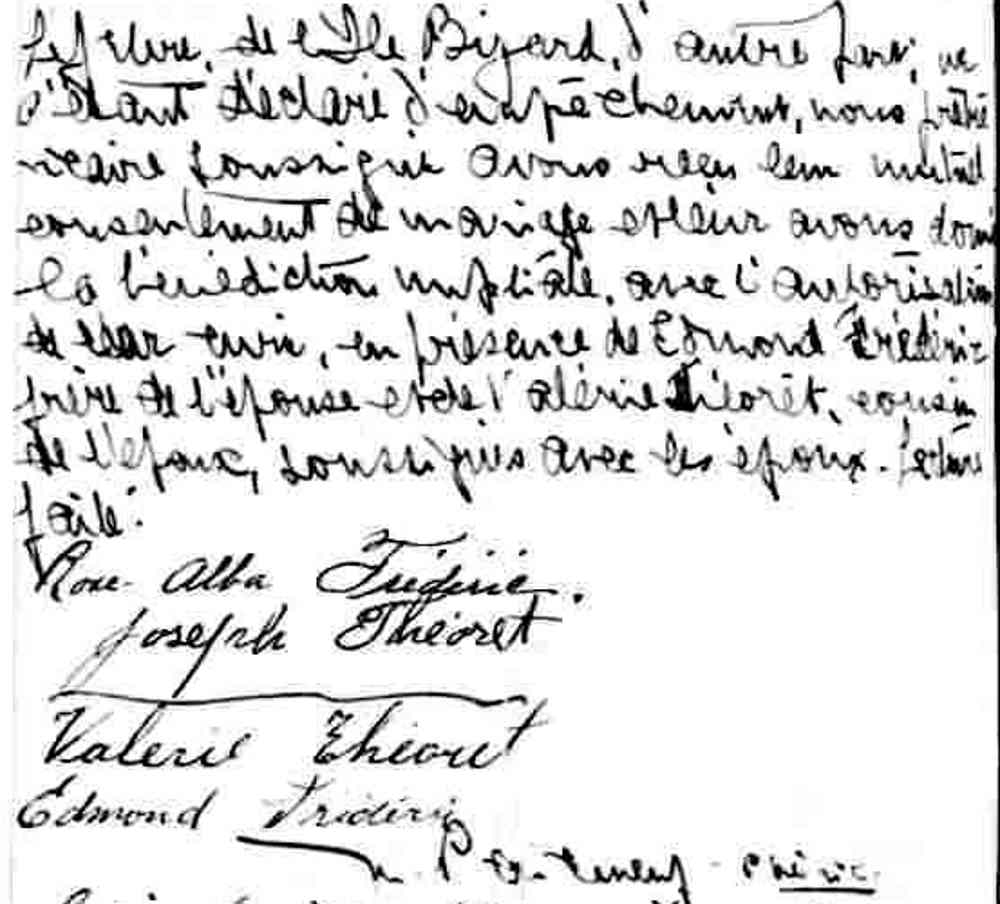 Lefebvre, de l'Ile Bizard, d'autre part, ne
s'étant déclaré d'empêchement, nous prêtre
vicaire soussigné avons reçu leur mutuel
consentement de mariage et leur avons donné
la bénédiction nuptiale, avec l'autorisation
de leur curé, en présence de Edmond Frédéric
frère de l'épouse et de Valérie Théorêt, cousin
de l'époux, soussignés avec les époux. Lecture
faite.
Rose-Alba Fréderic.
Joseph Théoret
Valerie Théoret
Edmond Fréderic
P. vic.